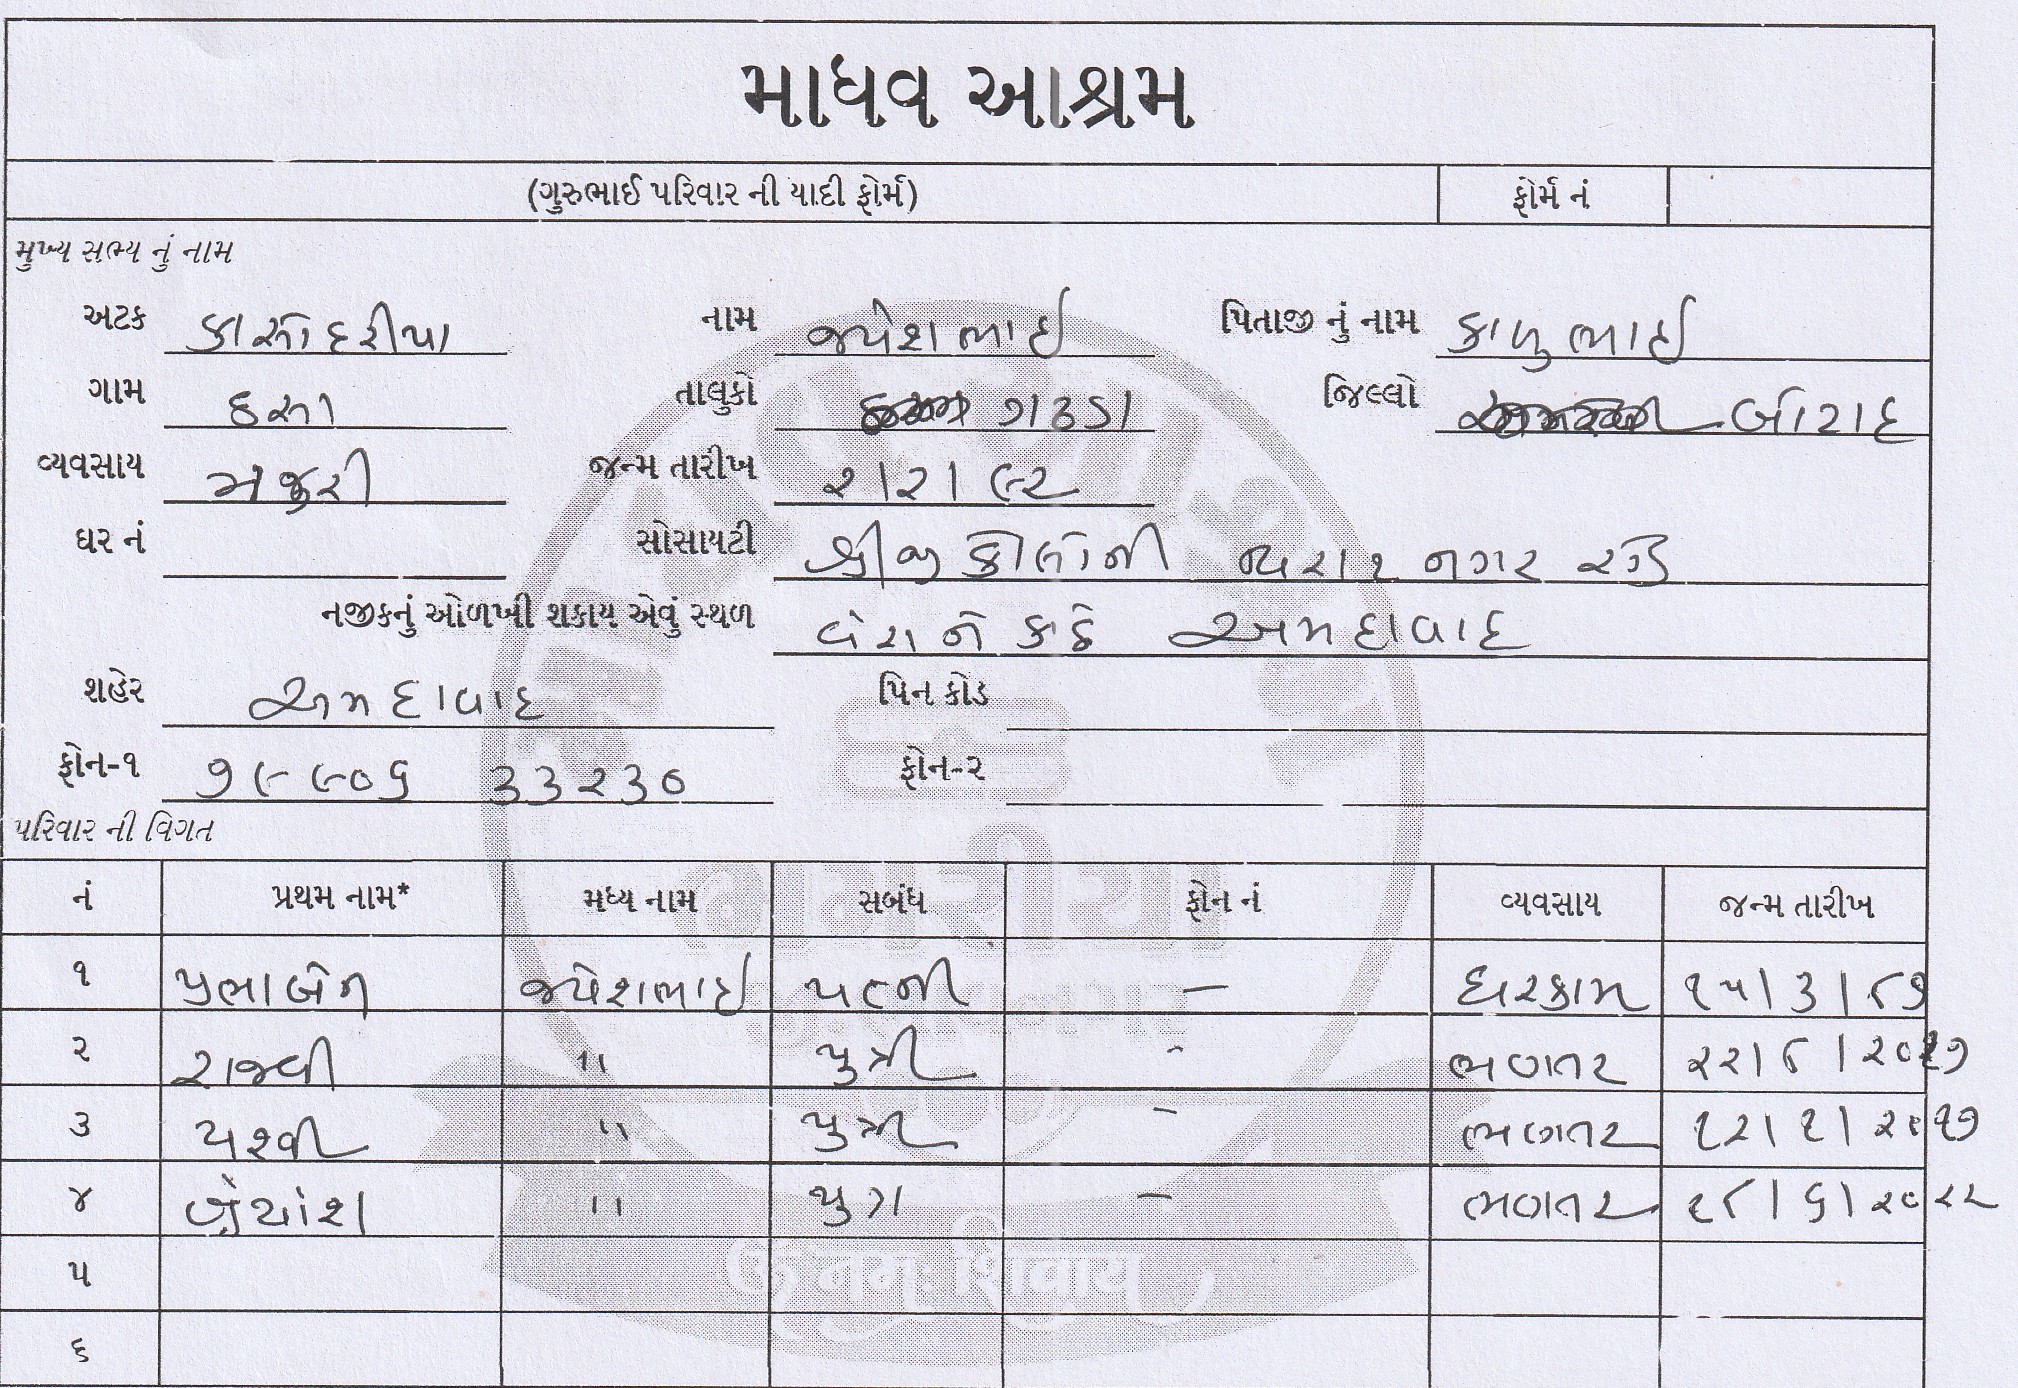 માધવ આશ્રમ
(ગુરુભાઈ પરિવાર ની યાદી ફોર્મ) ફોર્મ નં
મુખ્ય સભ્ય નું નામ
અટક કાસોદરીયા નામ જયેશભાઈ પિતાજી નું નામ કાળુભાઈ
ગામ ઢસા તાલુકો ગઢડા જિલ્લો બોટાદ
વ્યવસાય મજુરી જન્મ તારીખ ૨/૨/૯૨
ઘર નં સોસાયટી શ્રીજી કોલોની નગર
નજીકનું ઓળખી શકાય એવું સ્થળ અમદાવાદ
શહેર અમદાવાદ પિન કોડ
ફોન-૧ ૭૯૯૦૬ ૩૩૨૩૦ ફોન-૨
પરિવાર ની વિગત
નં પ્રથમ નામ* મધ્ય નામ સબંધ ફોન નં વ્યવસાય જન્મ તારીખ
૧ પ્રભાબેન જયેશભાઈ પત્ની – ઘરકામ ૧૫/૩/૮૭
૨ રાજવી " પુત્રી - ભણતર ૨૨/૮/૨૦૧૭
૩ યશ્વી " પુત્રી - ભણતર ૧૨/૧/૨૦૧૭
૪ શ્રેયાંશ " પુત્ર – ભણતર ૧૮/૬/૨૦૨૨
૫
૬
ૐ નમઃ શિવાય